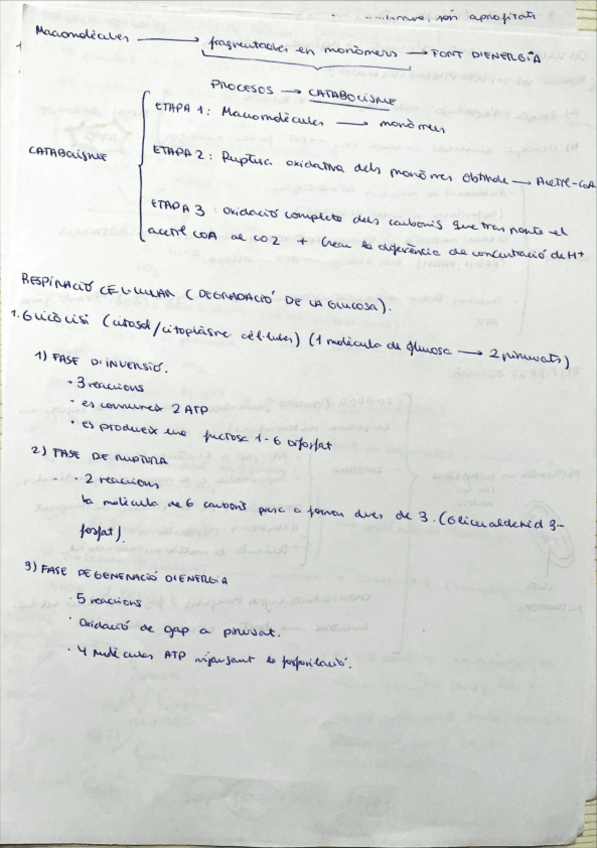 són aprofitats
Macromolècules → fragmentades en monòmers → FONT D'ENERGIA
PROCESOS → CATABOLISME
CATABOLISME
ETAPA 1: Macromolècules → monòmers
ETAPA 2: Ruptura oxidativa dels monòmers obtinguts → Acetil-CoA
ETAPA 3: oxidació completa dels carbonis que transporta el
acetil CoA al CO2 + Crear la diferència de concentració de H+
RESPIRACIÓ CEL·LULAR (DEGRADACIÓ DE LA GLUCOSA).
1. GLICÒLISI (citosol/citoplasma cèl·lules) (1 molècula de glucosa → 2 piruvats)
1) FASE D'INVERSIÓ.
· 3 reaccions
· es consumeix 2 ATP
· es produeix una fructosa 1-6 bifosfat
2) FASE DE RUPTURA
· 2 reaccions
la molècula de 6 carbonis passa a formar dues de 3. (Gliceraldehid 3-
fosfat).
3) FASE DE GENERACIÓ D'ENERGIA
· 5 reaccions
· Oxidació de gap a piruvat.
· 4 molècules ATP mitjançant la fosforilació.